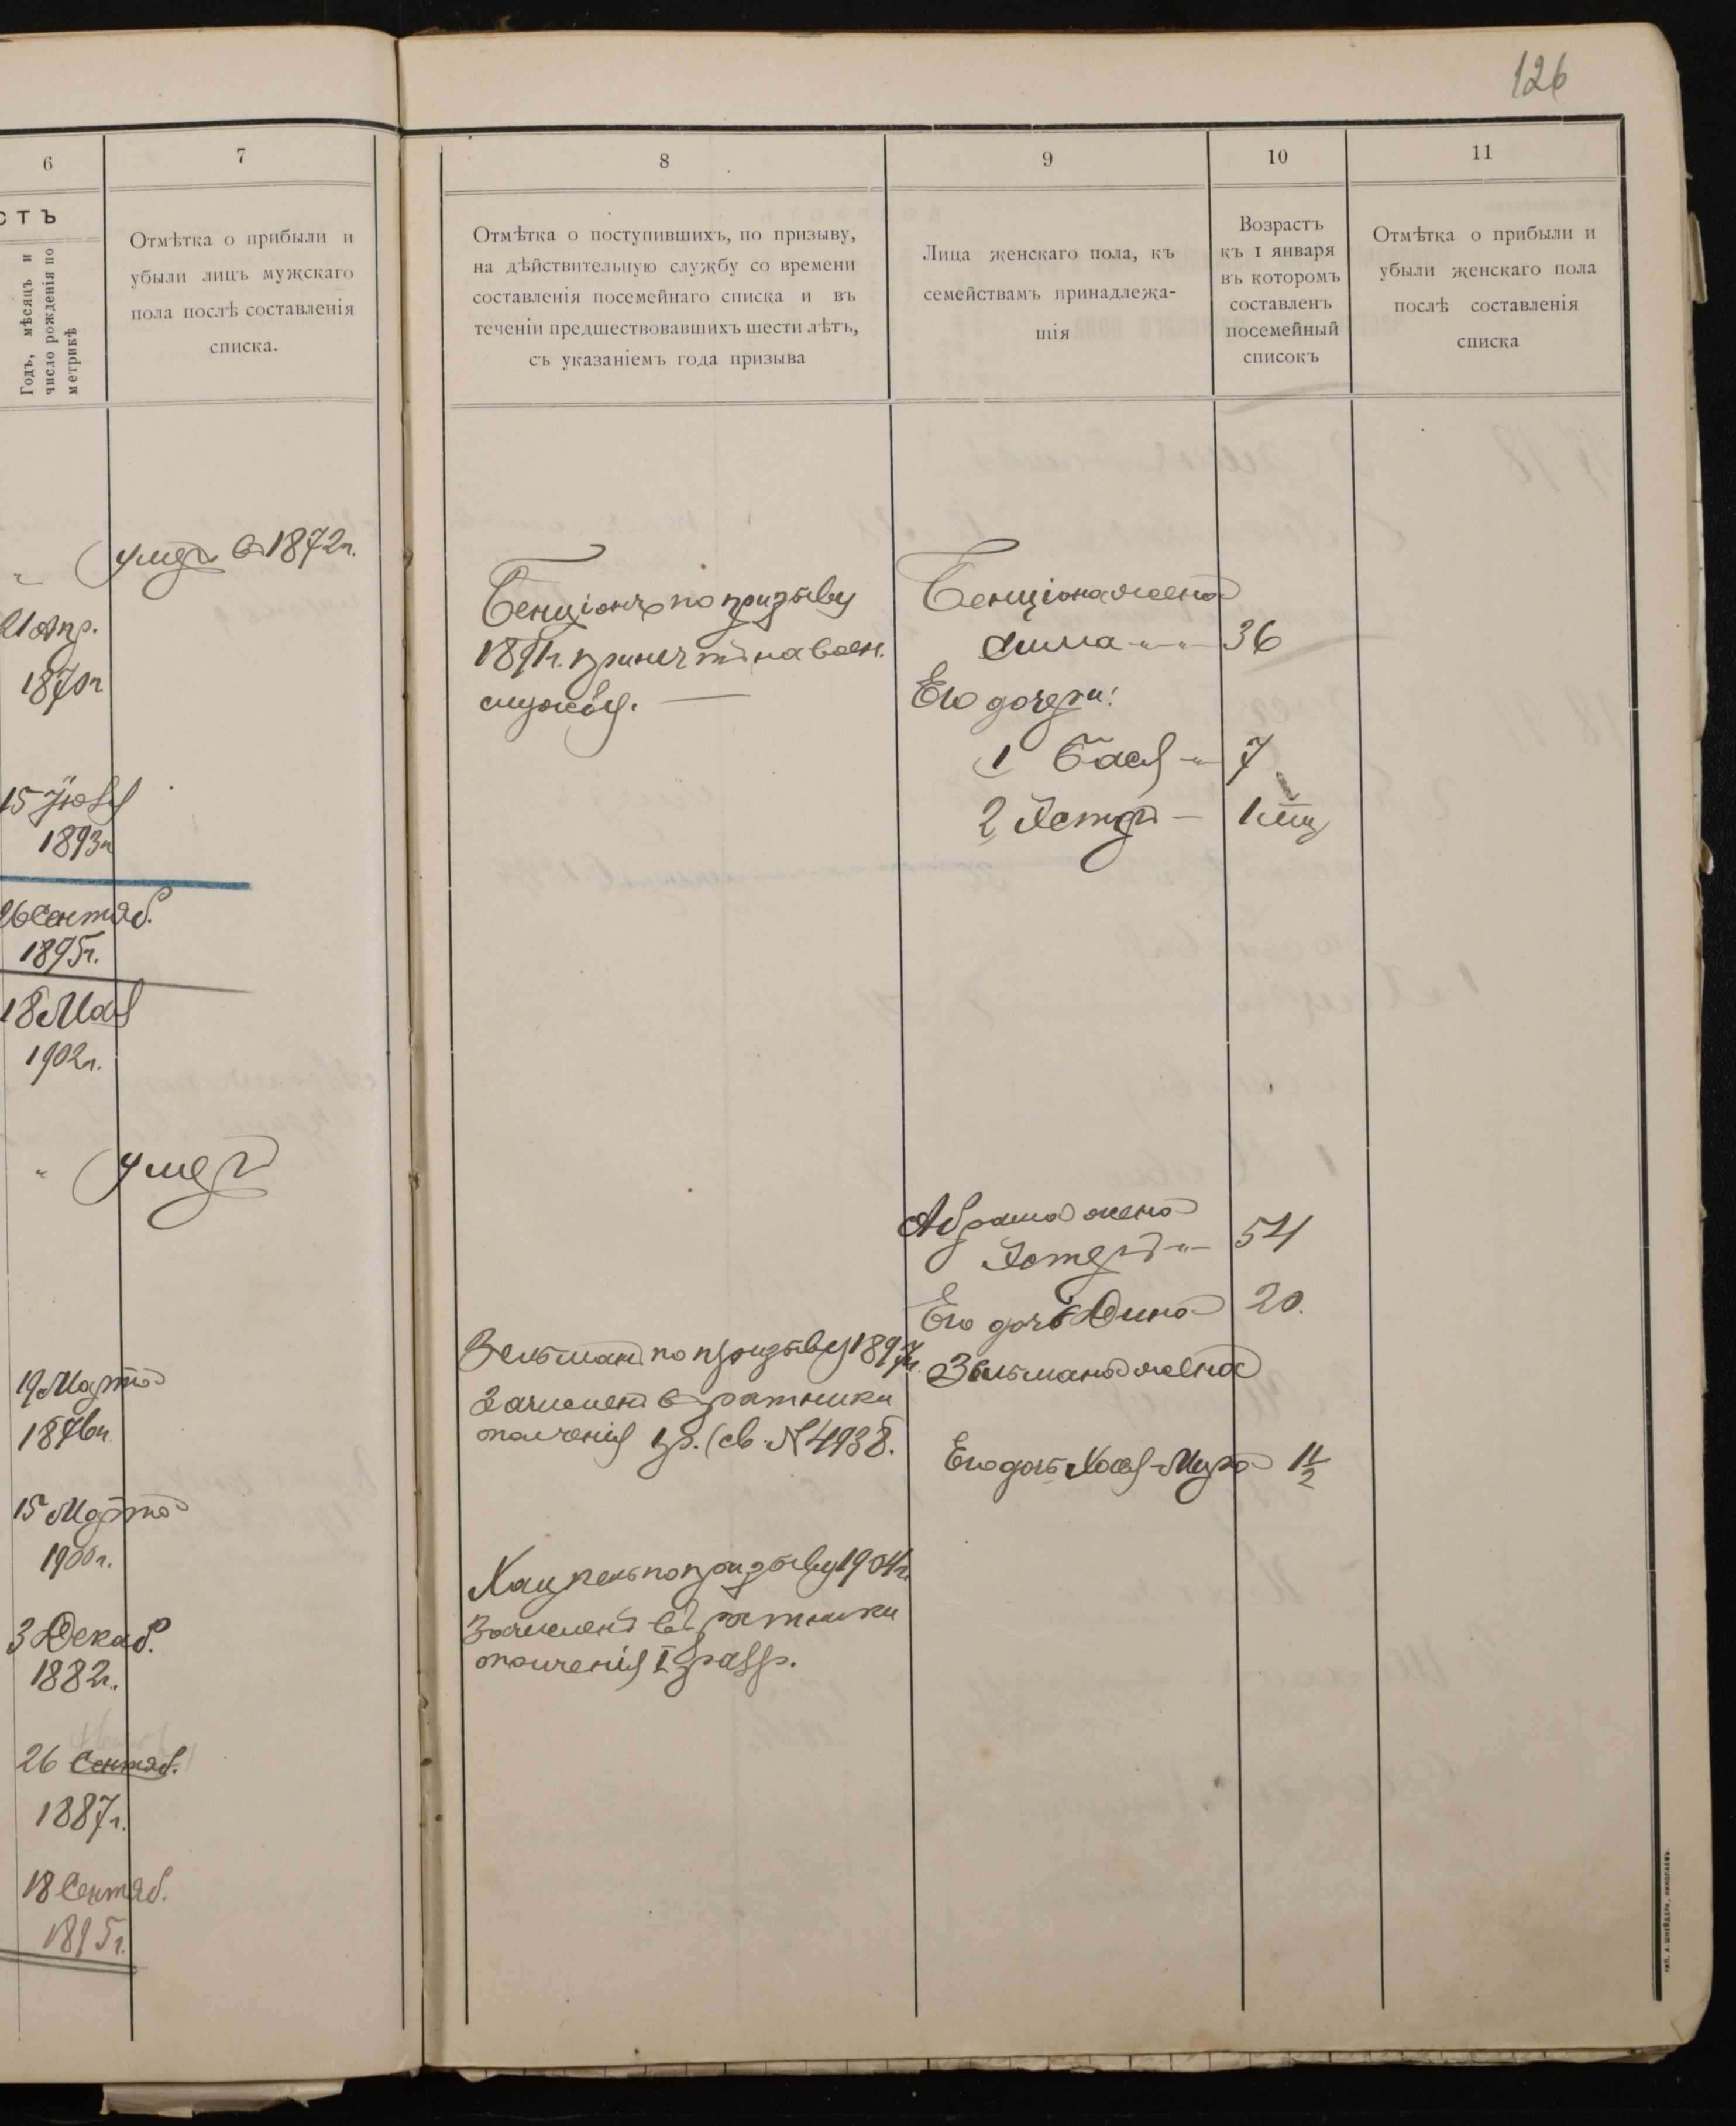 126
6
7
8
9
10
11
СТЪ
Годъ, мѣсяцъ и
число рожденія по
метрикѣ
Отмѣтка о прибыли и
убыли лицъ мужскаго
пола послѣ составленія
списка.
Отмѣтка о поступившихъ, по призыву,
на дѣйствительную службу со времени
составленія посемейнаго списка и въ
теченіи предшествовавшихъ шести лѣтъ,
съ указаніемъ года призыва
Лица женскаго пола, къ
семействамъ принадлежа-
щія
Возрастъ
къ 1 января
въ которомъ
составленъ
посемейный
списокъ
Отмѣтка о прибыли и
убыли женскаго пола
послѣ составленія
списка
" умеръ въ 1872г.
21 Апр.
1870г
15 Юля
1893г
26 Сентяб.
1895г.
18 Мая
1902г.
" умеръ
19 Марта
1876г.
15 Марта
1900г.
3 Декаб.
1882г.
26 Сентяб.
1887г.
18 Сентяб.
1895г.
Бенціонъ по призыву
1891г. принятъ на воен.
службу.
Зельманъ по призыву 1897г.
зачисленъ въ ратники
ополченія 1 р. (св. № 4938.
Хацкель по призыву 1904г.
зачисленъ въ ратники
ополченія I разр.
Бенціона жена
36
Его дочери:
1 Бася " 7
2 Эстеръ — 1 мц
Абрама жена
Эстеръ " 54
Его дочь Дина 20.
Зельмана жена
Его дочь Хая-Мира 1 1/2
ТИП. А. ШНЕЙДЕРА, НИКОЛАЕВЪ.